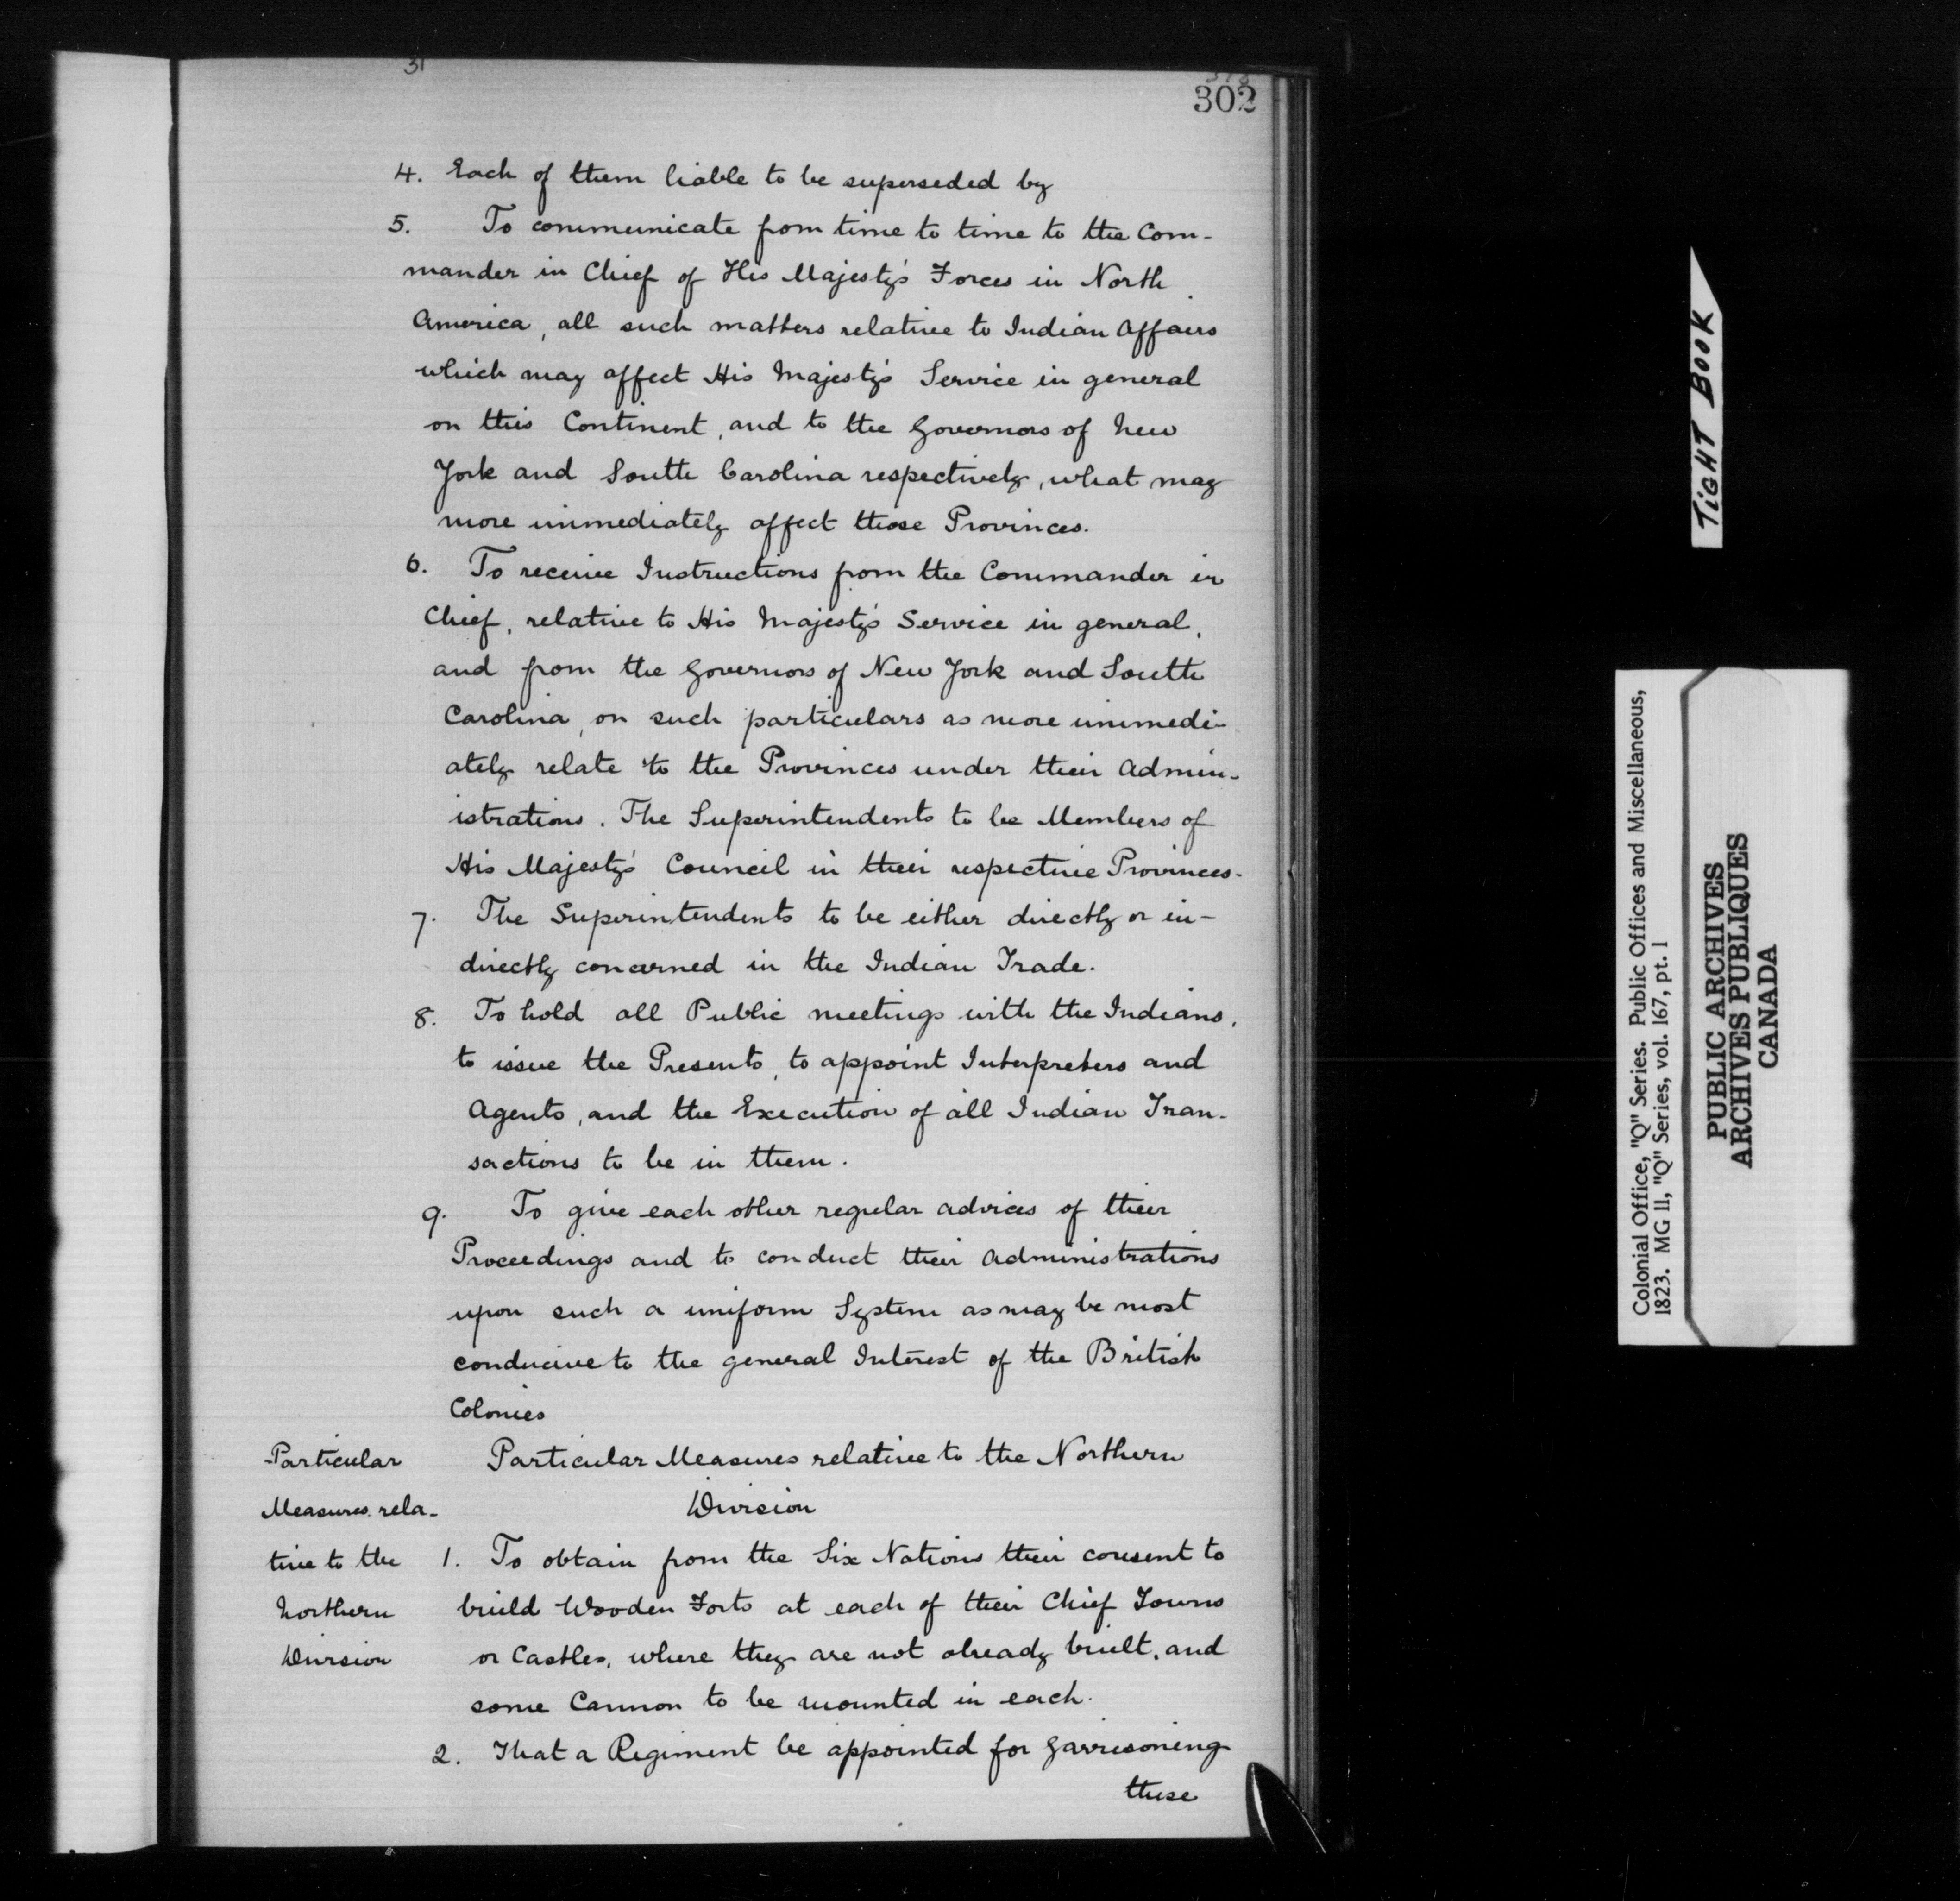 31
302
4. Each of them liable to be superseded by
5. To communicate from time to time to the Com-
mander in Chief of His Majesty's Forces in North
America, all such matters relative to Indian Affairs
which may affect His Majesty's Service in general
on this Continent, and to the Governors of New
York and South Carolina respectively, what may
more immediately affect those Provinces.
6. To receive Instructions from the Commander in
Chief, relative to His Majesty's Service in general,
and from the Governors of New York and South
Carolina, on such particulars as more immedi-
ately relate to the Provinces under their Admin-
istrations. The Superintendents to be Members of
His Majesty's Council in their respective Provinces.
7. The Superintendents to be either directly or in-
directly concerned in the Indian Trade.
8. To hold all Public meetings with the Indians,
to issue the Presents, to appoint Interpreters and
Agents, and the Execution of all Indian Tran-
sactions to be in them.
9. To give each other regular advices of their
Proceedings and to conduct their Administrations
upon such a uniform System as may be most
conducive to the general Interest of the British
Colonies
Particular
Measures rela-
tive to the
Northern
Division
Particular Measures relative to the Northern
Division
1. To obtain from the Six Nations their consent to
build Wooden Forts at each of their Chief Towns
or Castles, where they are not already built, and
some Cannon to be mounted in each.
2. That a Regiment be appointed for garrisoning
these
TIGHT BOOK
Colonial Office, "Q" Series. Public Offices and Miscellaneous,
1823. MG 11, "Q" Series, vol. 167, pt. 1
PUBLIC ARCHIVES
ARCHIVES PUBLIQUES
CANADA